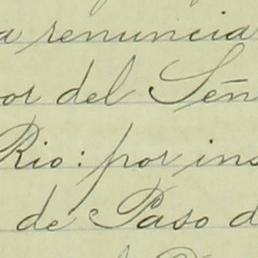 a renuncia
or del Señ
Rio: por ins
de Paso d